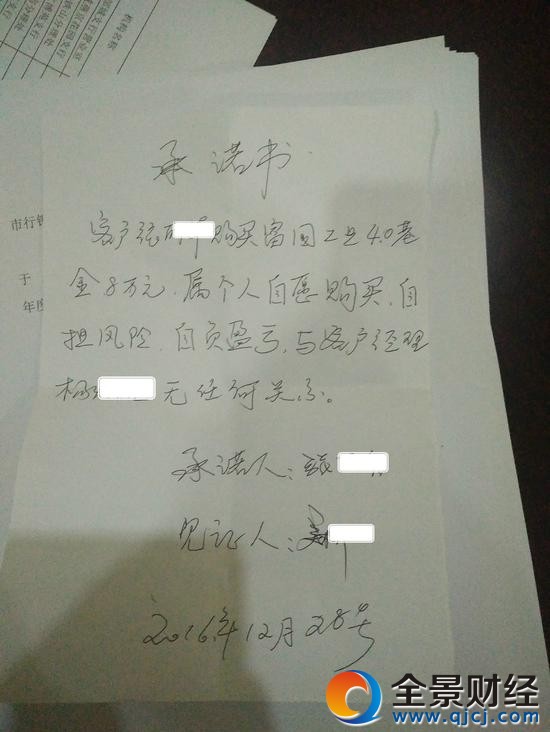 机构名称
市行镇
于
年度
承诺书
客户张 购买富国工业4.0基
金8万元,属个人自愿购买,自
担风险,自负盈亏,与客户经理
杨 无任何关系。
承诺人:张
见证人:
2016年12月28号
全景财经
www.qjcj.com